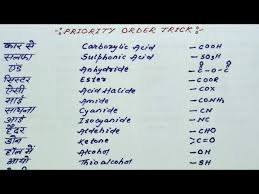 PRIORITY ORDER TRICK
कार से Carboxylic Acid - COOH
सल्फा Sulphonic Acid - SO3H
Anhydride - C-O-C-
सिस्टर Ester - COOR
ऐसी Acid Halide - COX
आई Amide - CONH2
साधना Cyanide - CN
आई Isocyanide - NC
हैदर Aldehide - CHO
डोन Ketone - >C=O
होल में Alcohol - OH
आयो Thioalcohol - SH